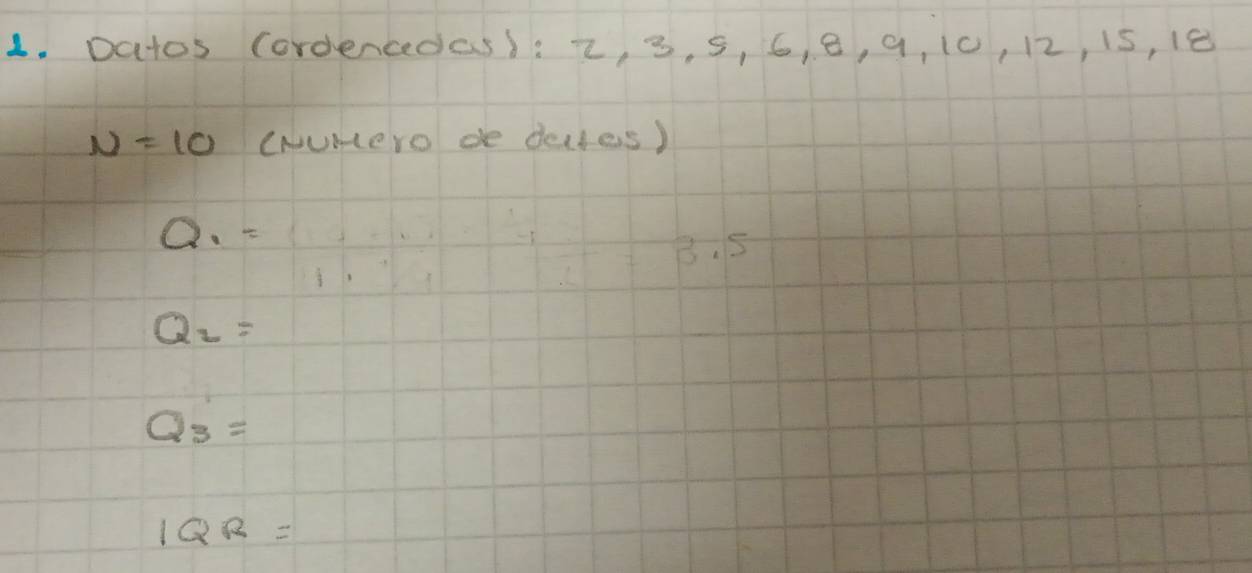 1. Datos (ordenadas): 2, 3, 5, 6, 8, 9, 10, 12, 15, 18
N = 10 (Numero de datos)
Q1 = 3.5
Q2 =
Q3 =
IQR =